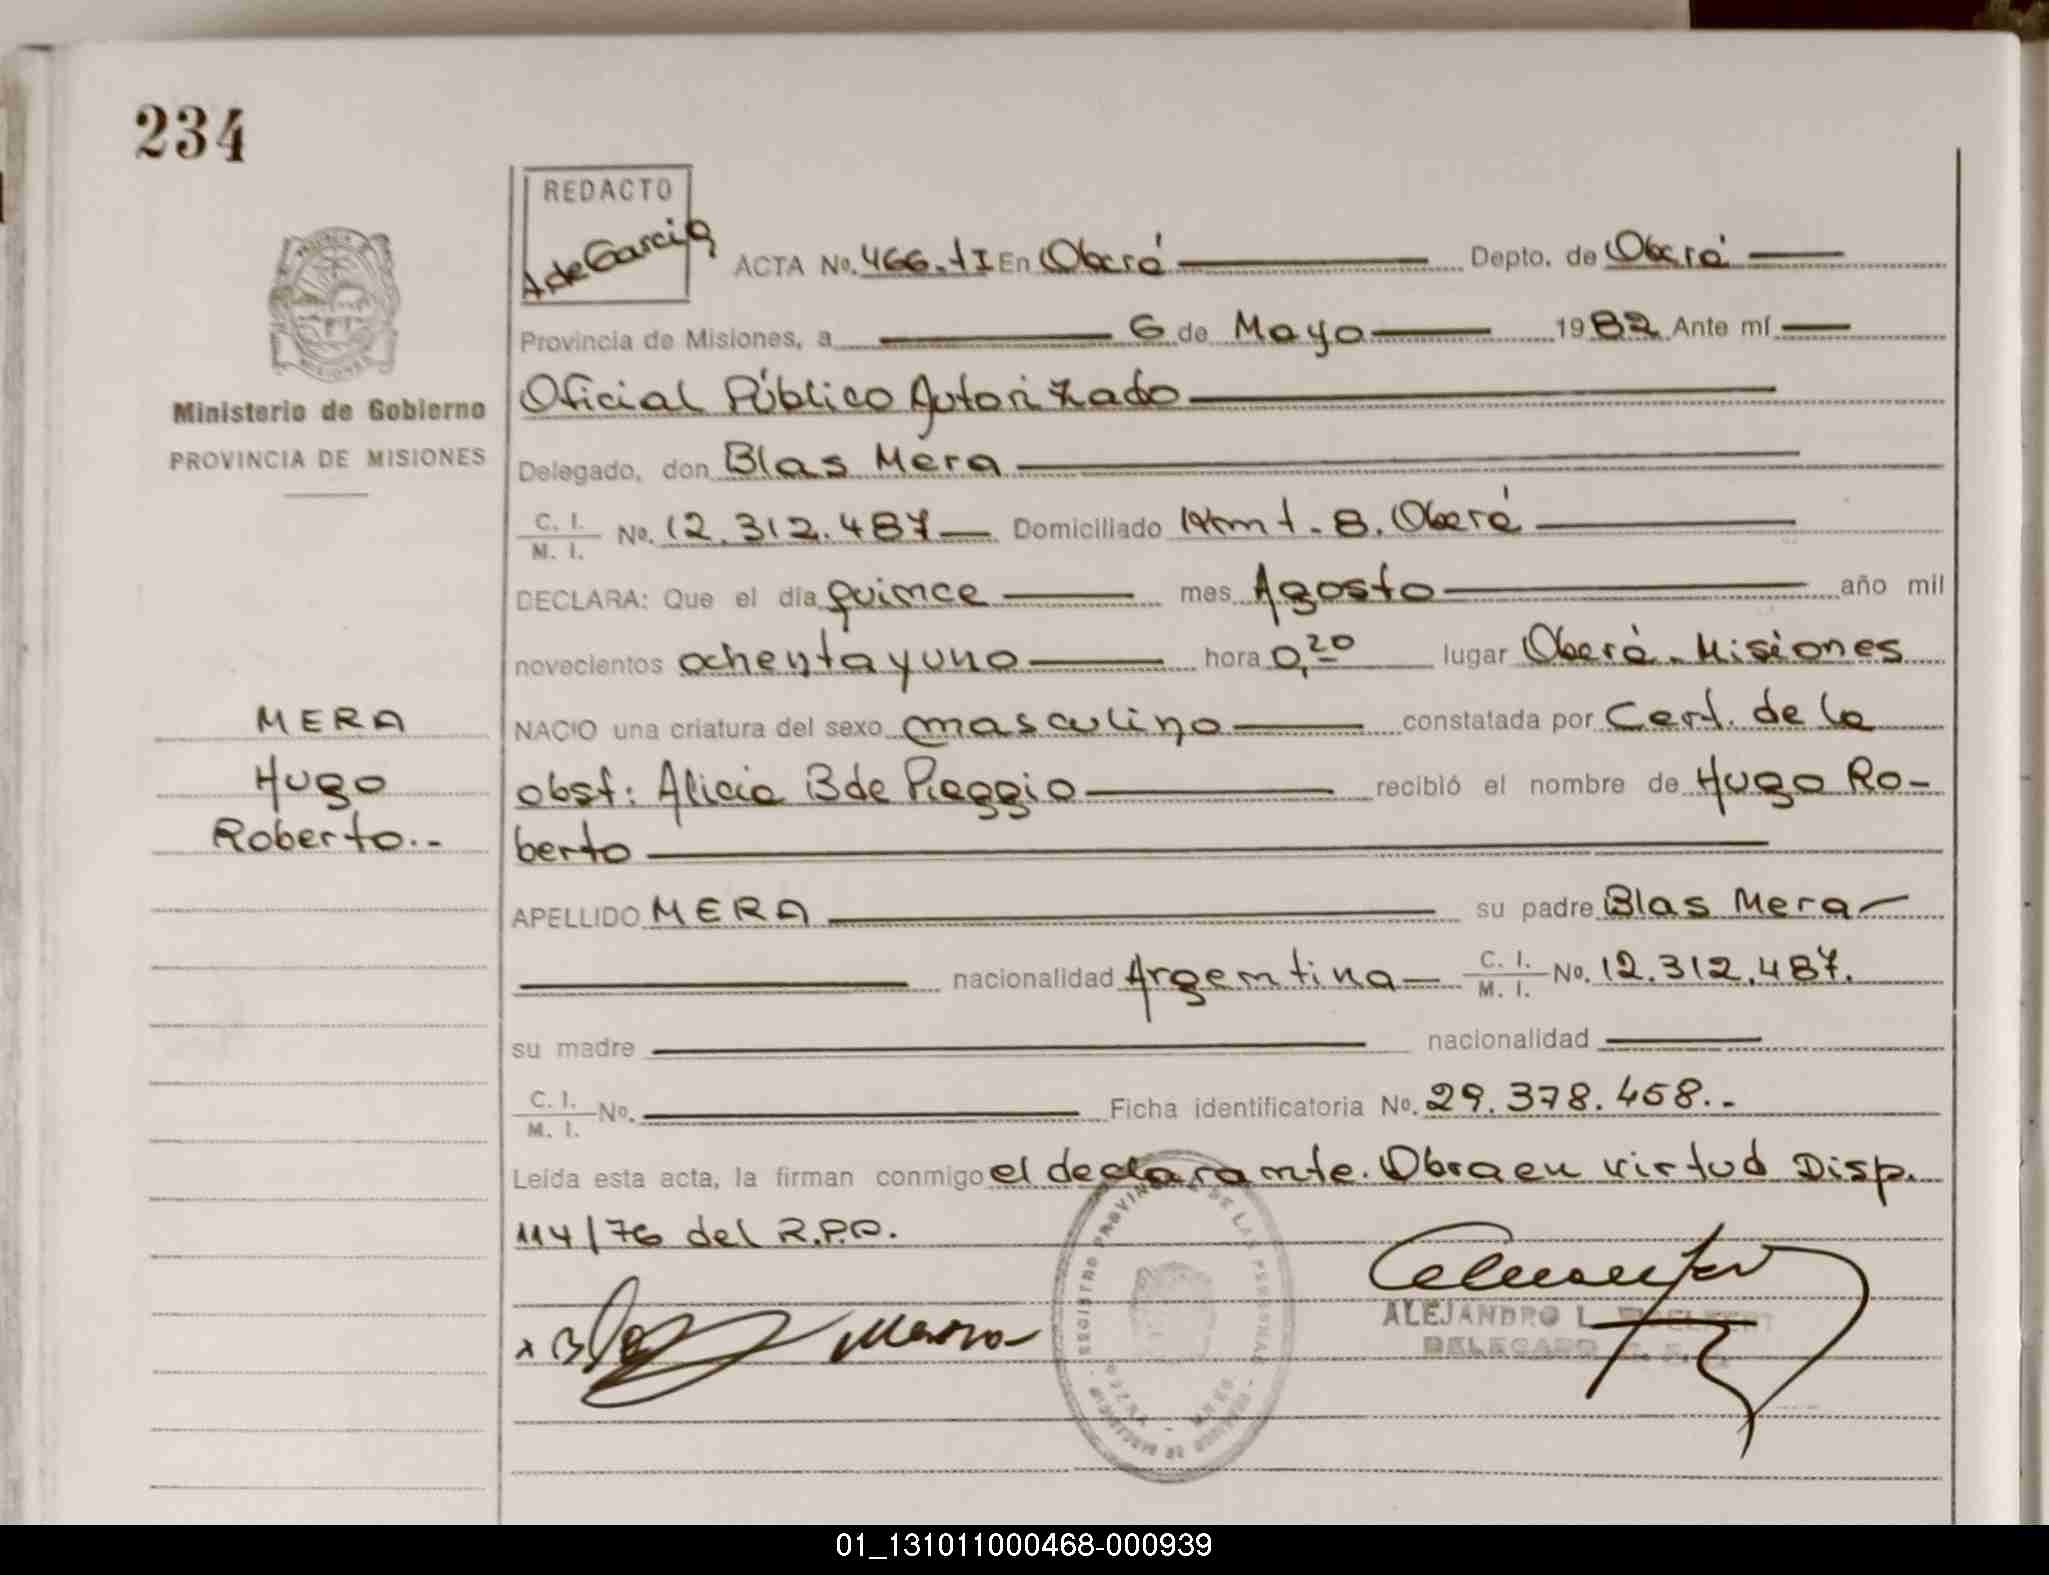 234
REDACTO
A de Garcia
ACTA No. 466-tI En Oberá Depto. de Oberá
Provincia de Misiones, a 6 de Mayo 1982 Ante mí
Oficial Público Autorizado
Ministerio de Gobierno
PROVINCIA DE MISIONES
Delegado, don Blas Mera
C. I. / M. I. No. 12.312.487 Domiciliado Kmt. 8. Oberá
DECLARA: Que el día quince mes Agosto año mil
novecientos ochenta y uno hora 0,20 lugar Oberá-Misiones
NACIO una criatura del sexo masculino constatada por Cert. de la
obst: Alicia B de Piaggio recibió el nombre de Hugo Ro-
berto
MERA
Hugo
Roberto.-
APELLIDO MERA su padre Blas Mera
nacionalidad Argentina C. I. / M. I. No. 12.312.487.
su madre nacionalidad
C. I. / M. I. No. Ficha identificatoria No. 29.378.458.-
Leída esta acta, la firman conmigo el declarante. Obra en virtud Disp.
114/76 del R.P.P.
ALEJANDRO L.
DELEGADO
REGISTRO PROVINCIAL DE LAS PERSONAS
01_131011000468-000939